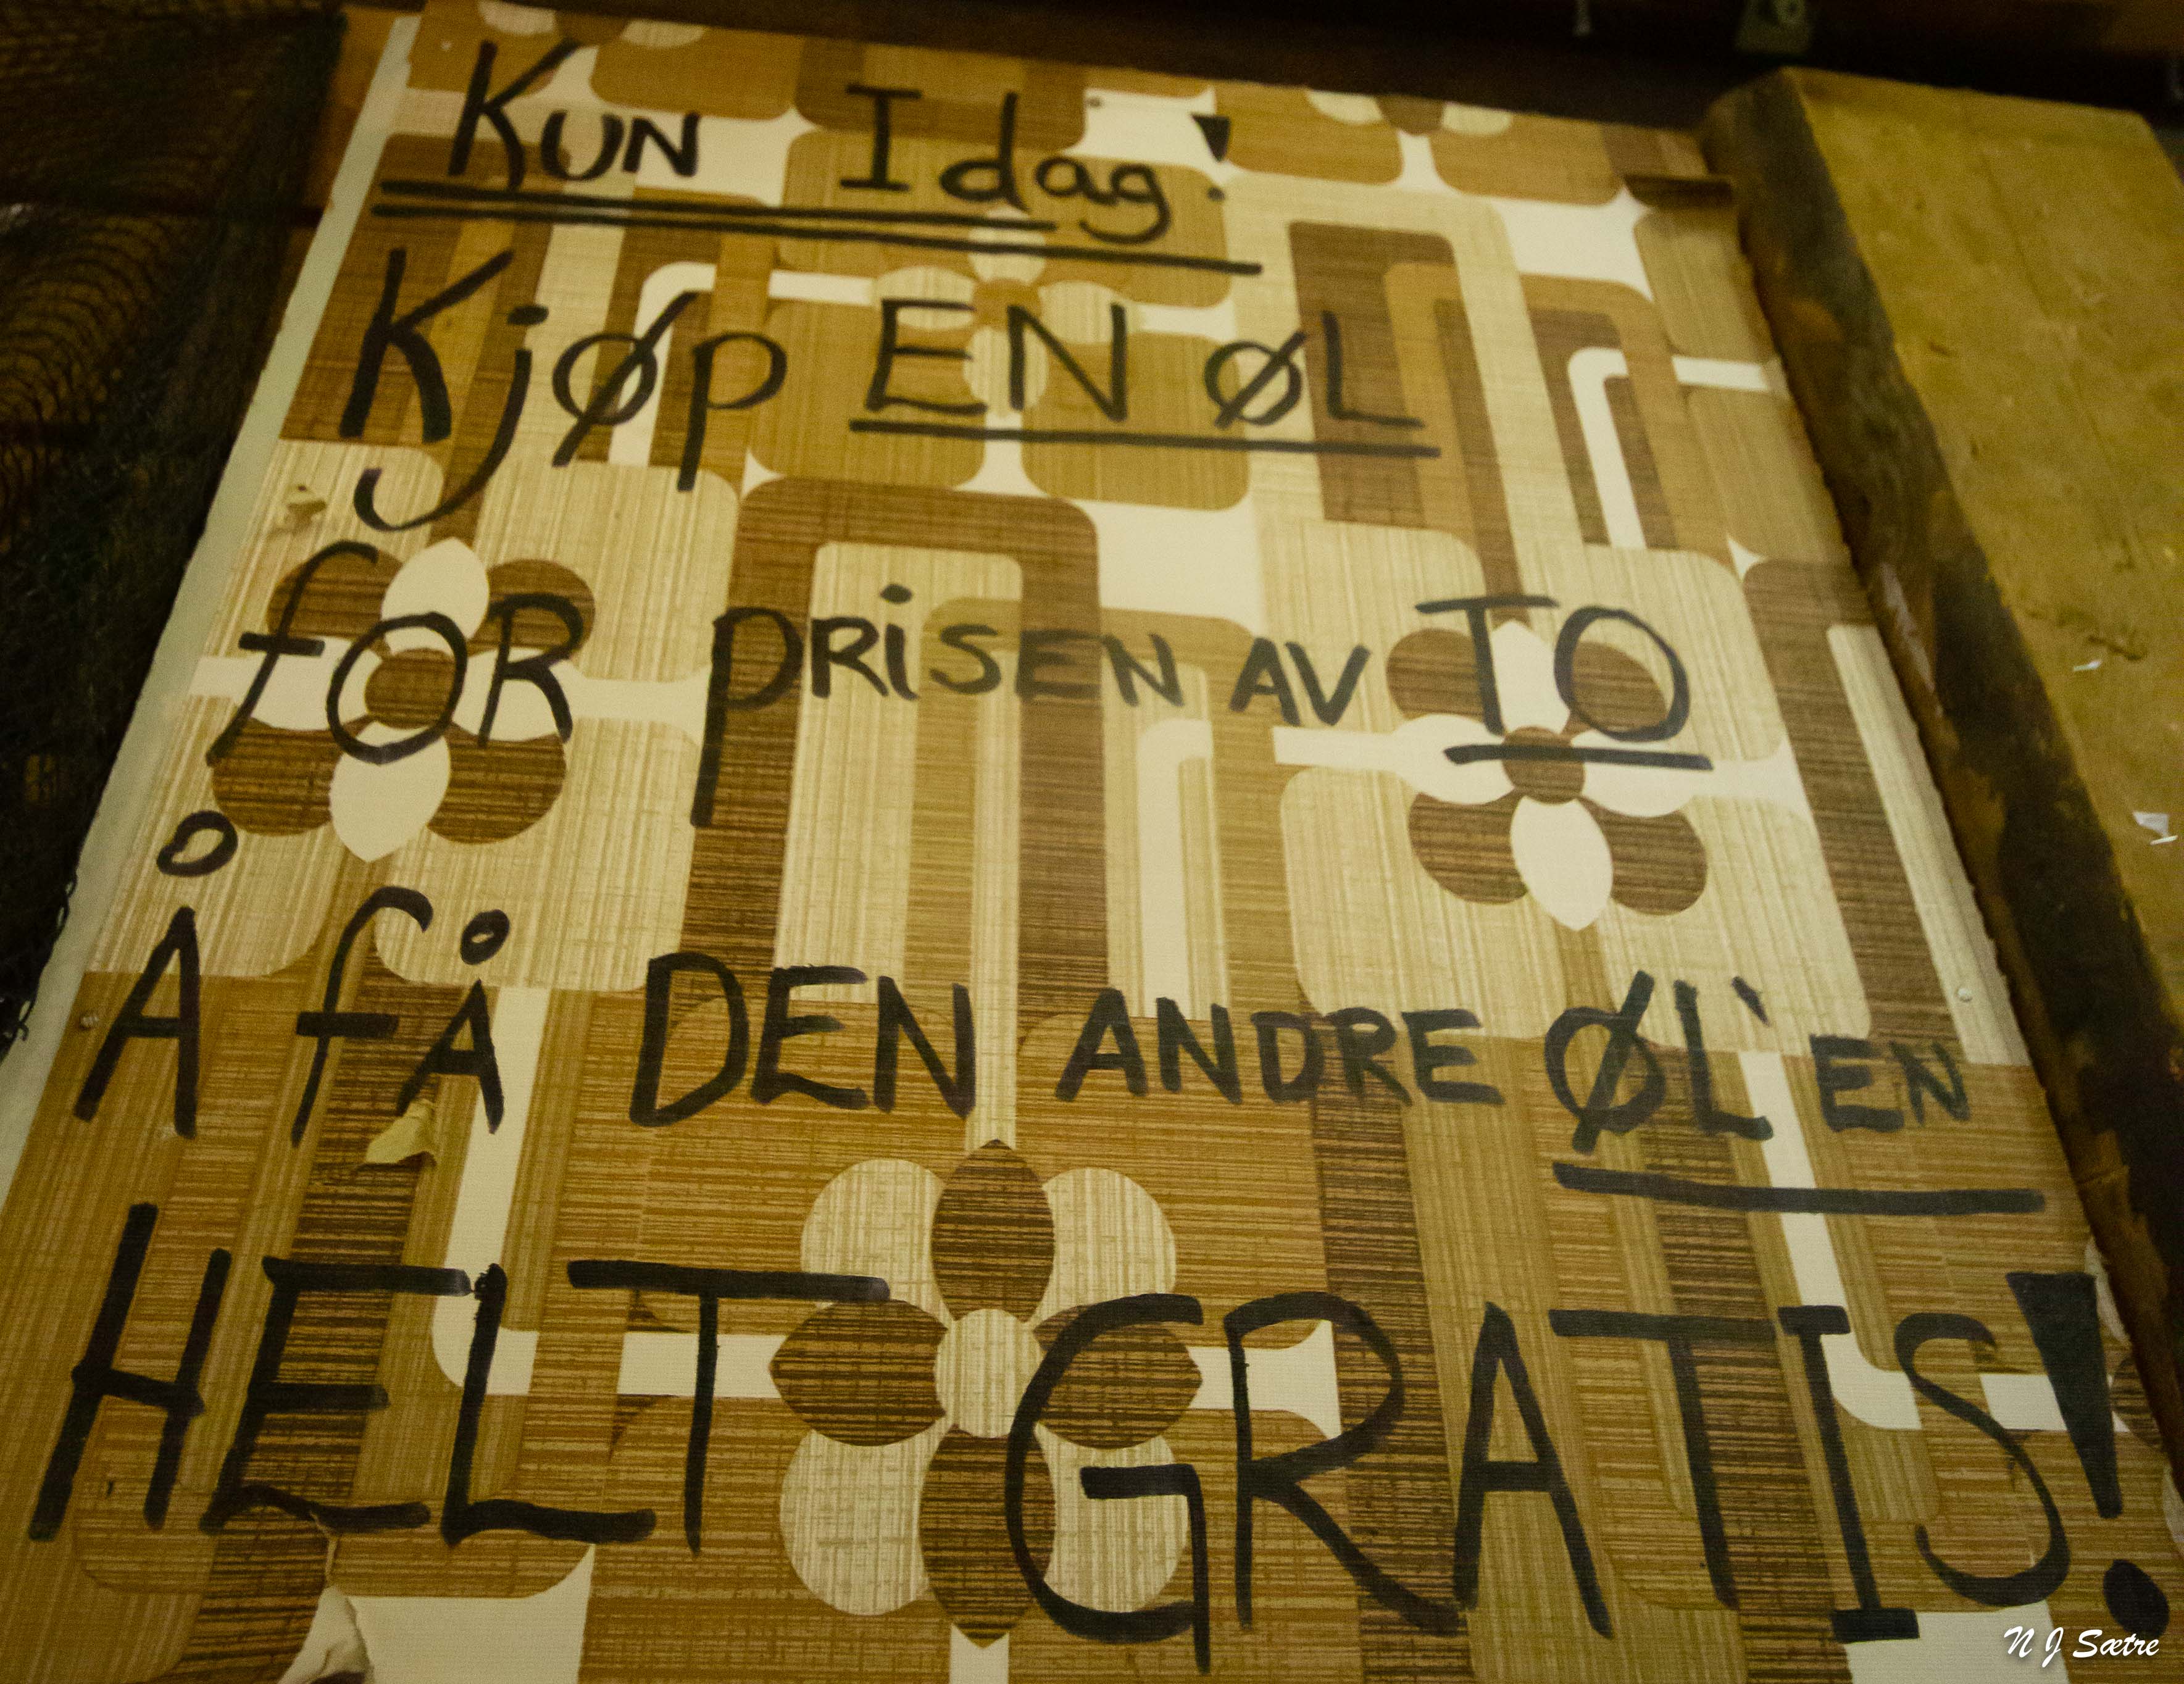 KUN Idag!
Kjøp EN ØL
fOR PRiSEN AV TO
Å få DEN ANDRE ØL'EN
HELT GRATIS!
N J Sætre